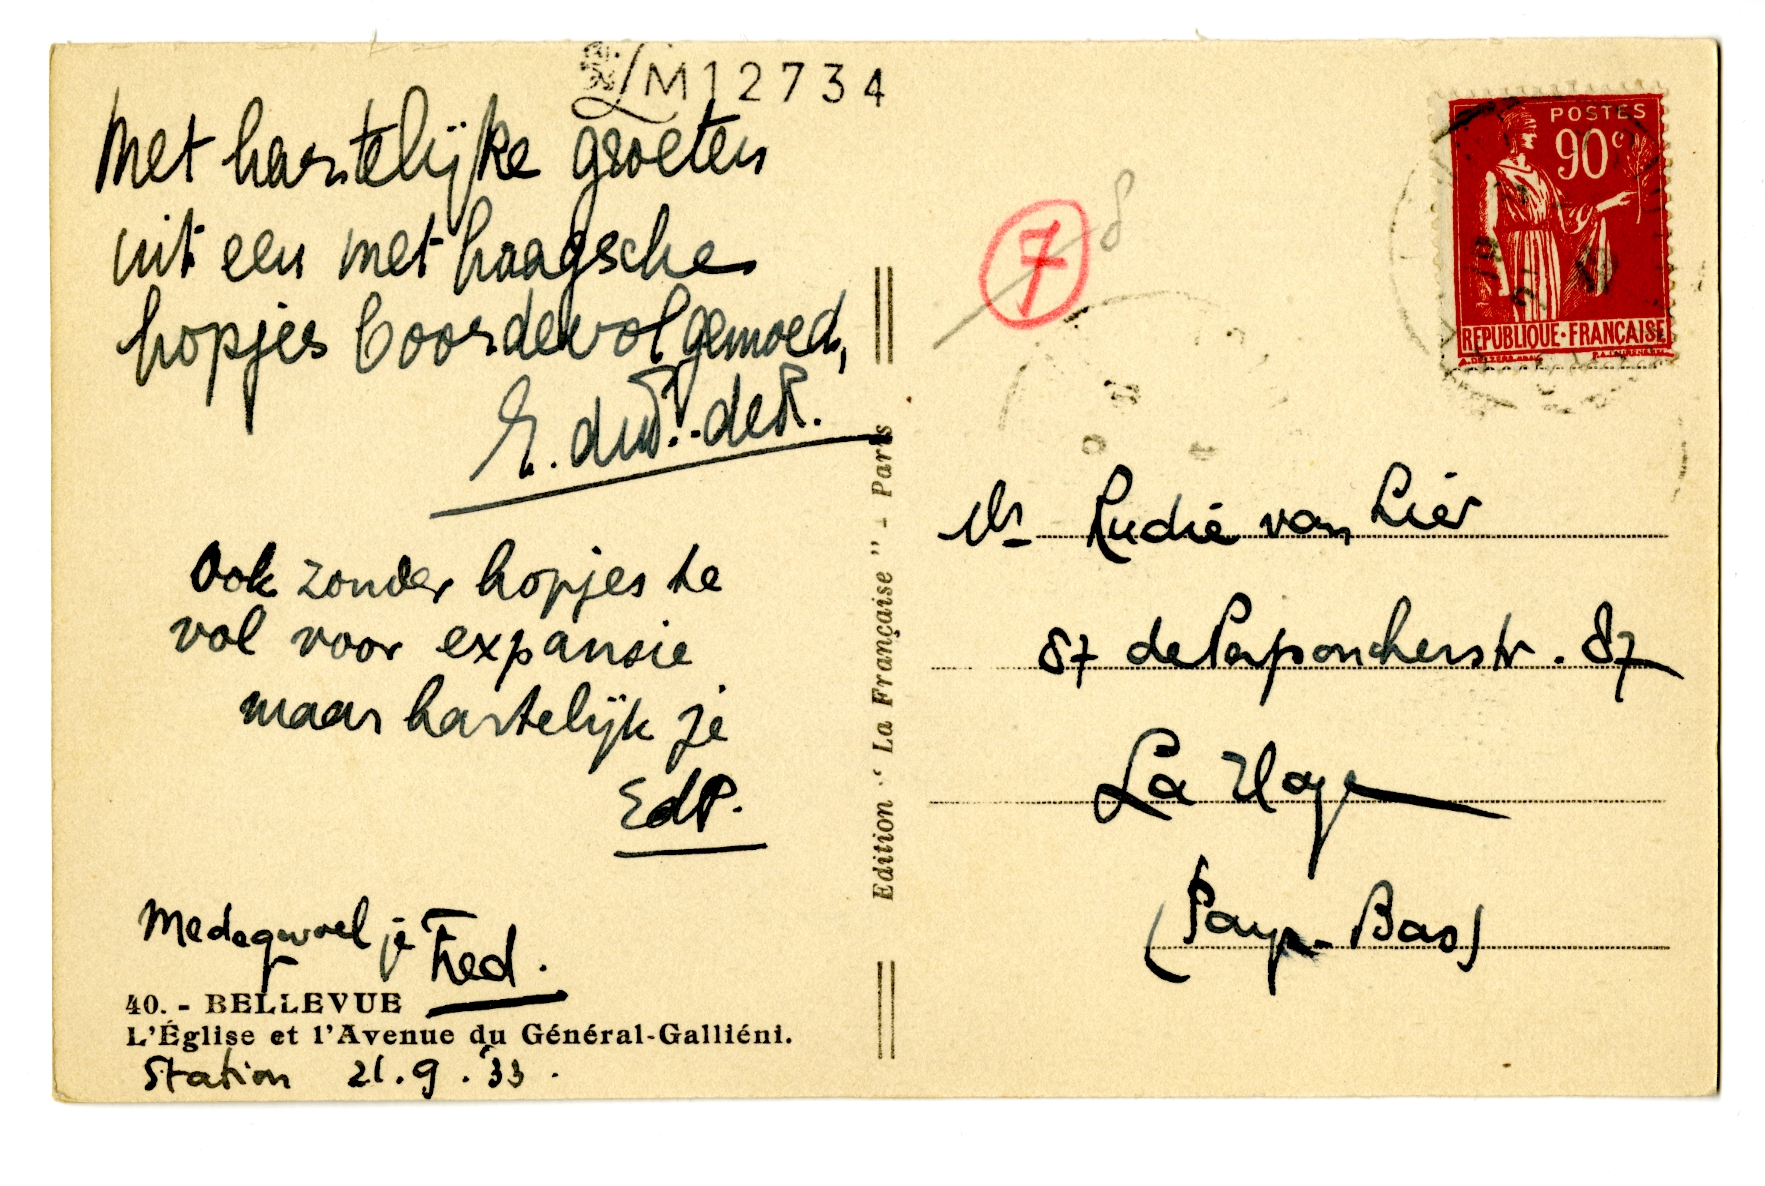 M12734
Met hartelijke groeten
uit een met haagsche
hopjes boordevol gemoed,
E. duP.-deR.
Ook zonder hopjes te
vol voor expansie
maar hartelijk je
EdP.
Medegevoel je Fred.
40. - BELLEVUE
L'Église et l'Avenue du Général-Galliéni.
Station 21.9.'33.
Edition "La Française" - Paris
7
8
POSTES
90c
REPUBLIQUE·FRANÇAISE
Mr Rudie van Lier
87 de Perponcherstr. 87
La Haye
(Pays-Bas)